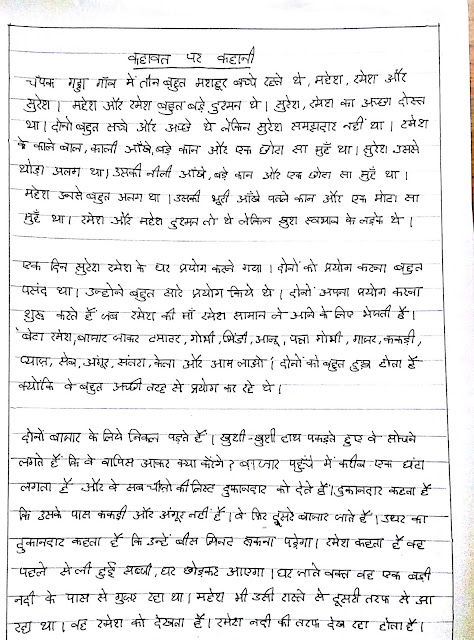 कहावत पर कहानी
चंपक गड्डा गाँव में तीन बहुत मशहूर बच्चे रहते थे, महेश, रमेश और
सुरेश। महेश और रमेश बहुत बड़े दुश्मन थे। सुरेश, रमेश का अच्छा दोस्त
था। दोनों बहुत सच्चे और अच्छे थे लेकिन सुरेश समझदार नहीं था। रमेश
के काले बाल, काली आँखे, बड़े कान और एक छोटा सा मुहँ था। सुरेश उससे
थोड़ा अलग था। उसकी नीली आँखे, बड़े कान और एक छोटा सा मुहँ था।
महेश उनसे बहुत अलग था। उसकी भूरी आँखे पतले कान और एक मोटा सा
मुहँ था। रमेश और महेश दुश्मन तो थे लेकिन स्वभाव के लड़के थे।
एक दिन सुरेश रमेश के घर प्रयोग करने गया। दोनों को प्रयोग करना बहुत
पसंद था। उन्होने बहुत सारे प्रयोग किये थे। दोनों अपना प्रयोग करना
शुरू करते हैं जब रमेश की माँ रमेश सामान ले आने के लिए भेजती हैं।
'बेटा रमेश, बाजार जाकर टमाटर, गोभी, भिंडी, आलू, पत्ता गोभी, गाजर, ककड़ी,
प्याज़, सेब, अंगूर, संतरा, केला और आम लाओ। दोनों को बहुत दुख होता है
क्योंकि वे बहुत अच्छी तरह से प्रयोग कर रहे थे।
दोनों बाजार के लिये निकल पड़ते हैं। खुशी-खुशी हाथ पकड़ते हुए वे सोचने
लगते हैं कि वे वापिस आकर क्या करेंगे? बाजार पहुँचे में करीब एक घंटा
लगता हैं और वे सब चीजों की लिस्ट दुकानदार को देते हैं। दुकानदार कहता हैं
कि उसके पास ककड़ी और अंगूर नहीं हैं। वे फिर दूसरे बाजार जाते हैं। उधर का
दुकानदार कहता हैं कि उन्हें बीस मिनट रुकना पड़ेगा। रमेश कहता हैं वह
पहले से ली हुई सब्जी, घर छोड़कर आएगा। घर जाते वक्त वह एक बड़ी
नदी के पास से गुजर रहा था। महेश भी उसी रास्ते से दूसरी तरफ से आ
रहा था। वह रमेश को देखता हैं। रमेश नदी की तरफ देख रहा होता हैं।